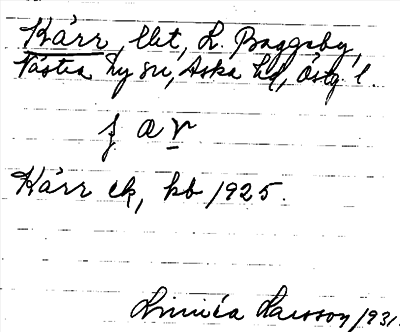 Kärr, lht, L. Baggeby,
Västra Ny sn, Aska hd, Östg l.
f a r
Kärr ek, kb 1925.
Linnéa Larsson 1931.